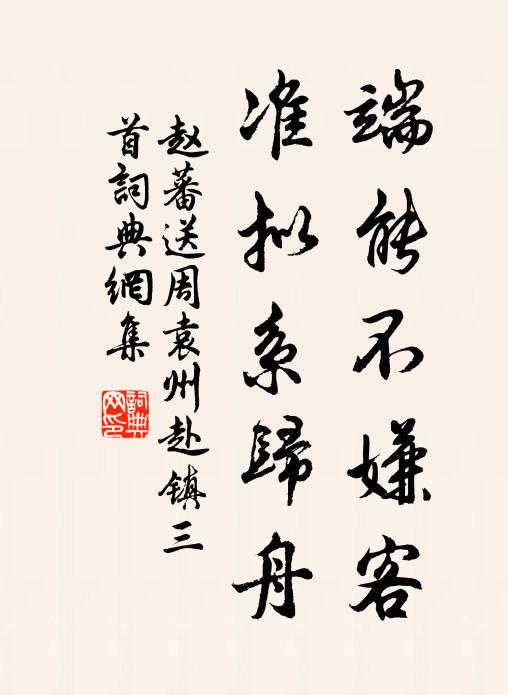 端能不嫌客
准拟系歸舟
赵蕃送周袁州赴镇三
首詞典網集
詞典网印